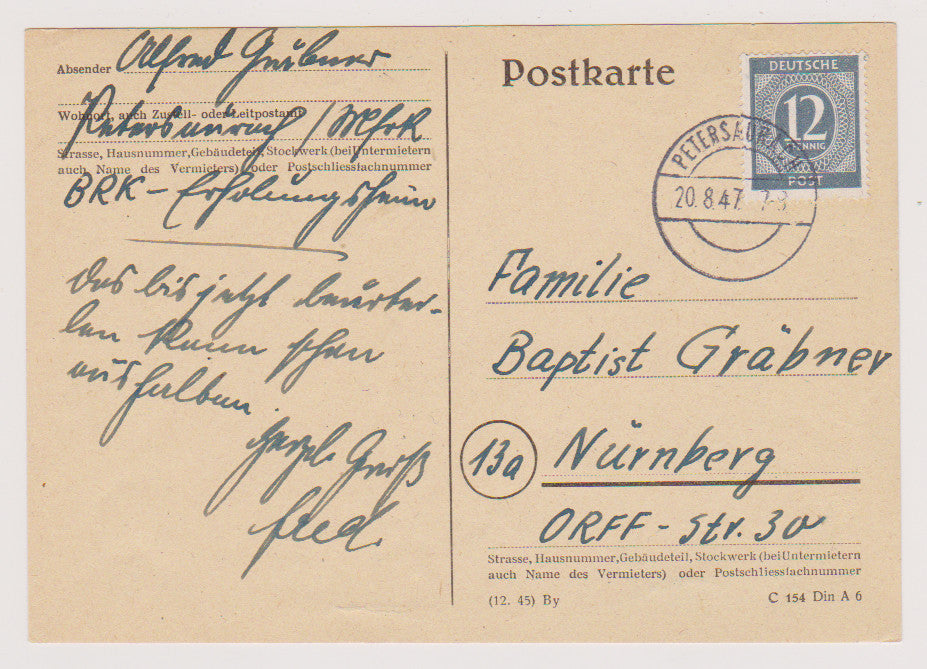 Absender Alfred Gräbner
Wohnort, auch Zustell- oder Leitpostamt
Petersaurach / Mfrk
Strasse, Hausnummer, Gebäudeteil, Stockwerk (bei Untermietern
auch Name des Vermieters) oder Postschliessfachnummer
BRK - Erholungsheim
das bis jetzt beurtei-
len kann schon
aushalten.
Herzl. Gruß
Fred.
Postkarte
DEUTSCHE
12
PFENNIG
POST
PETERSAURACH
20.8.47 7-8
Familie
Baptist Gräbner
13a Nürnberg
ORFF - Str. 30
Strasse, Hausnummer, Gebäudeteil, Stockwerk (bei Untermietern
auch Name des Vermieters) oder Postschliessfachnummer
(12. 45) By
C 154 Din A 6